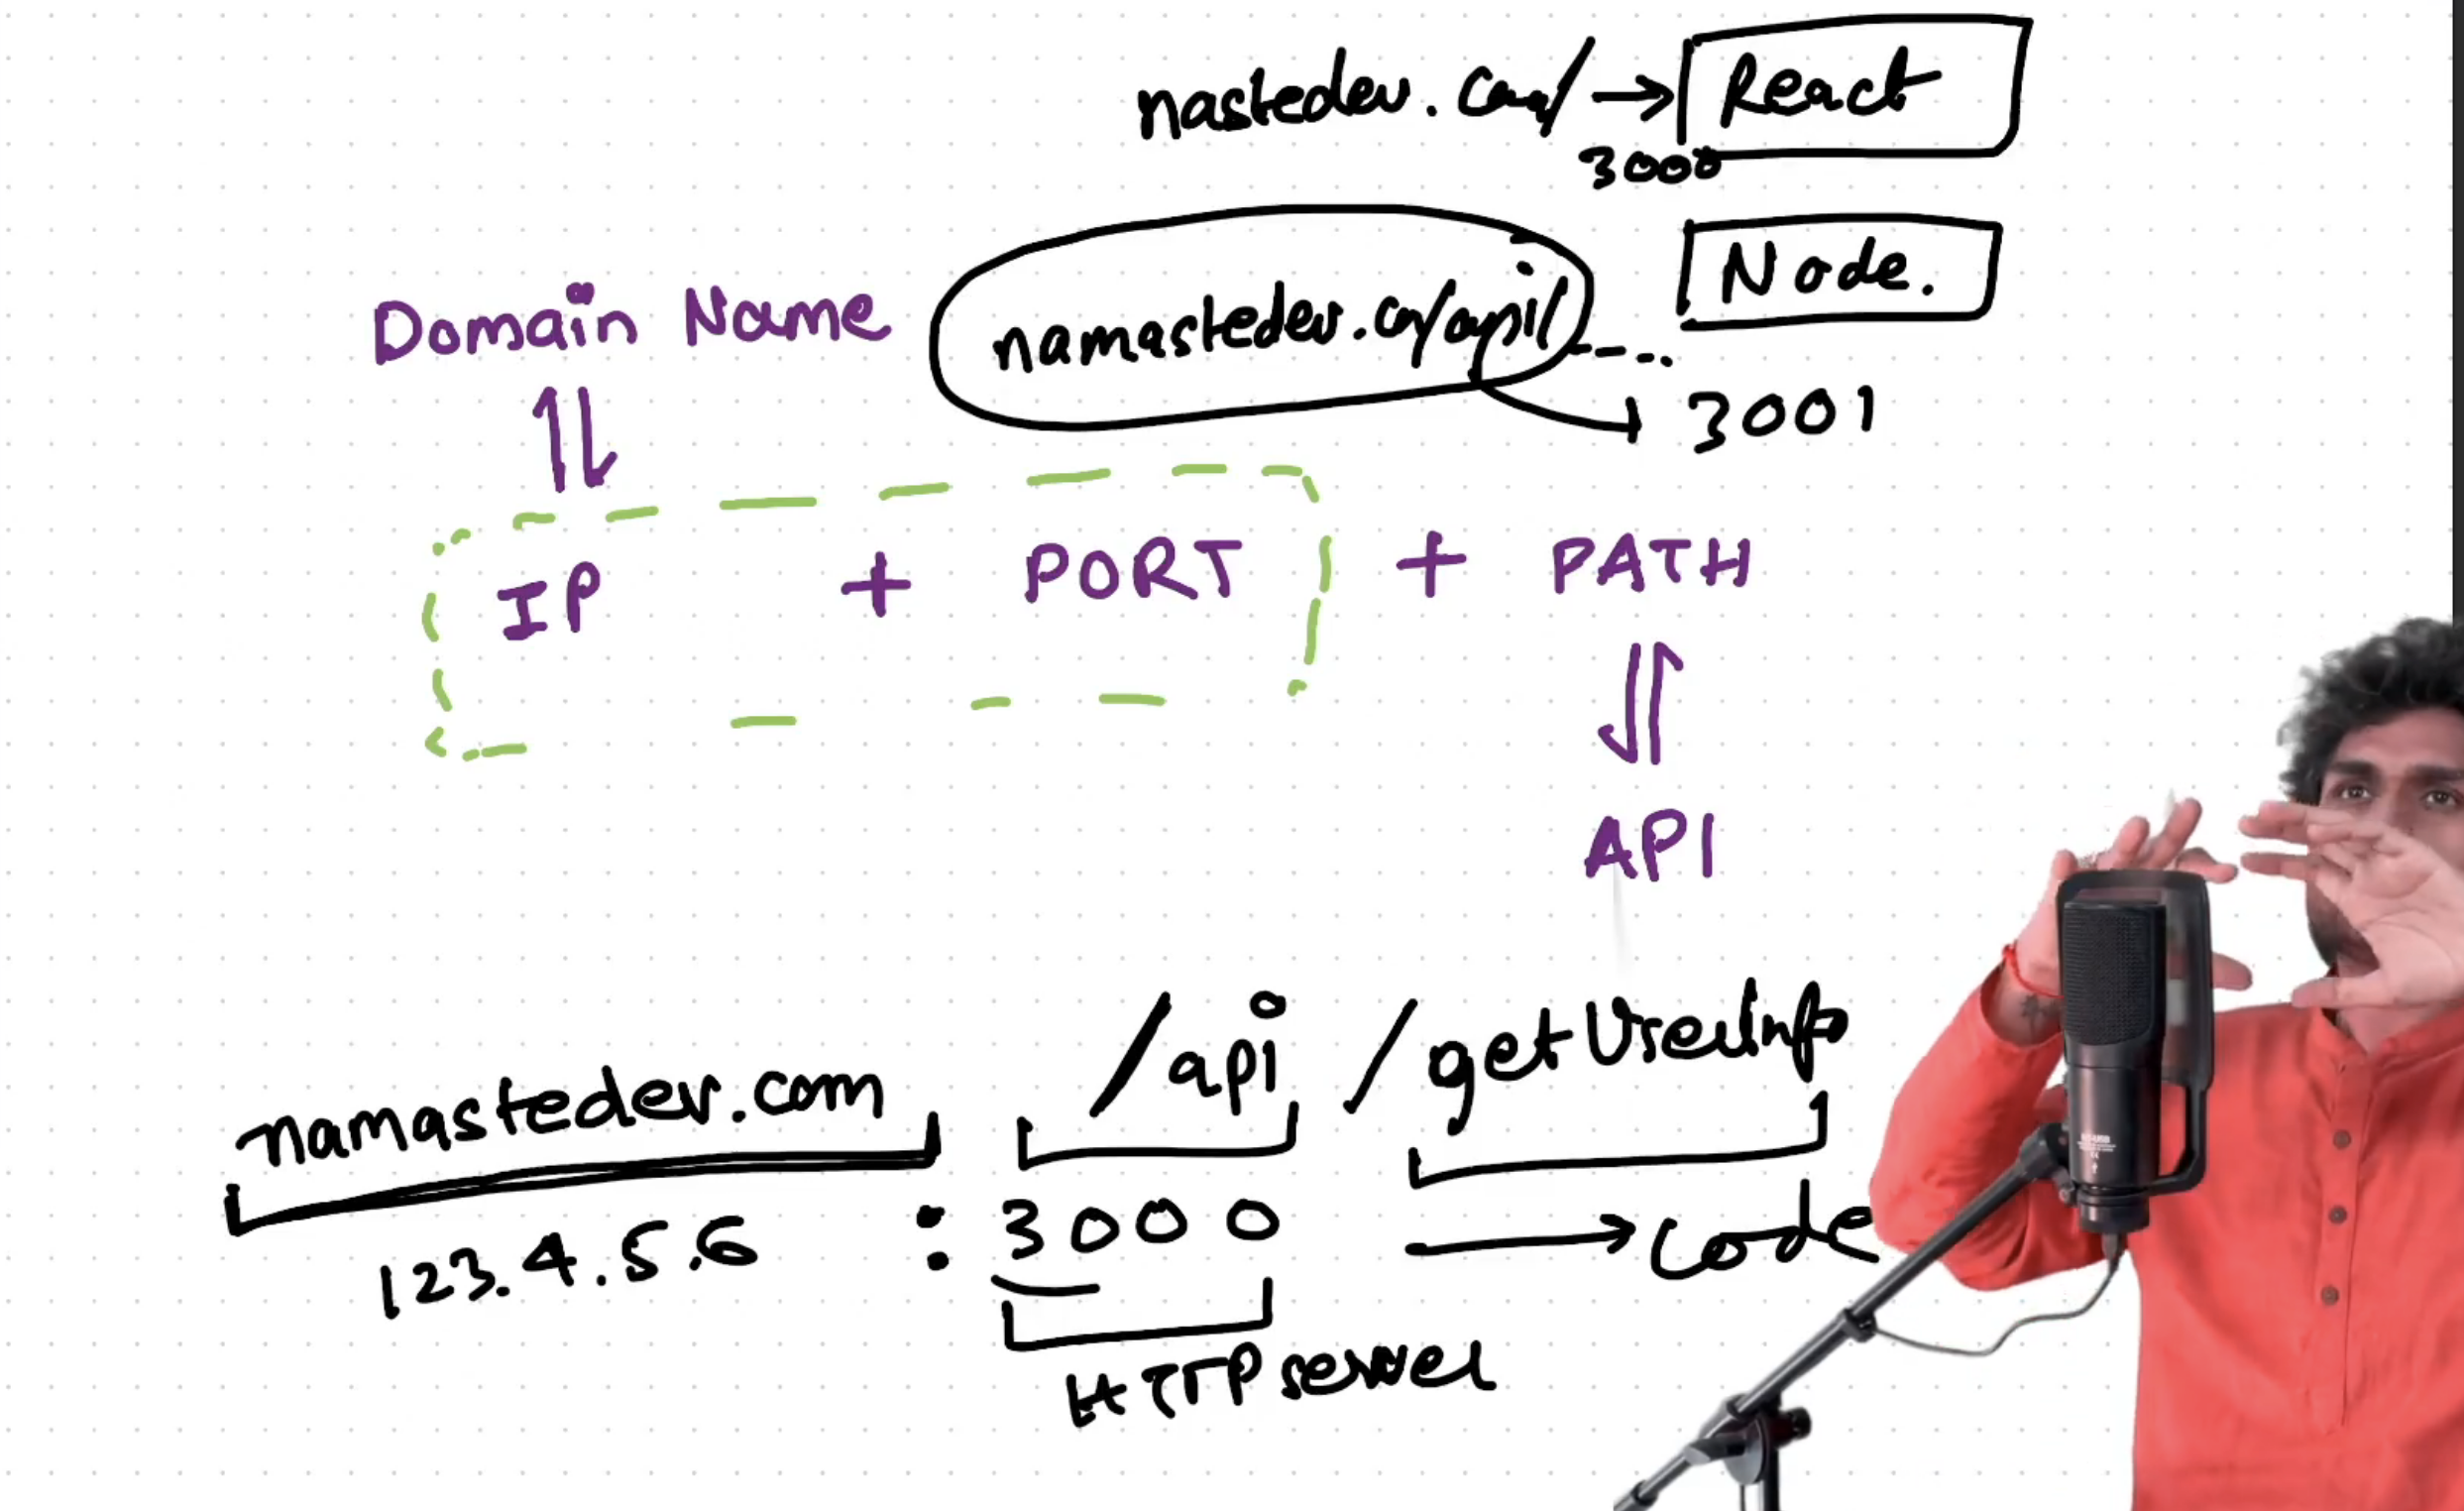 nastedev.com/ → React
3000
Node.
Domain Name
namastedev.co/api/----
3001
IP + PORT + PATH
API
namastedev.com /api /getUserInfo
123.4.5.6 : 3000 → Code
HTTP server